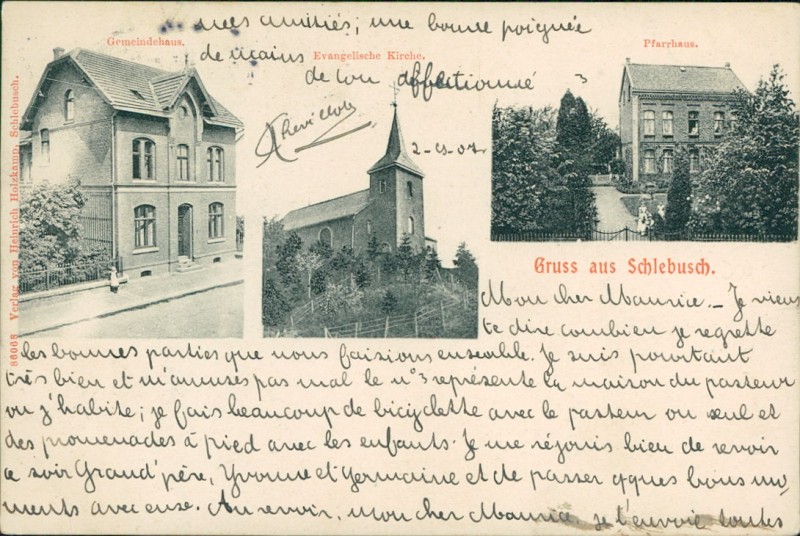 Gemeindehaus.
Evangelische Kirche.
Pfarrhaus.
3
2-
Gruss aus Schlebusch.
86068 Verlag von Heinrich Holzkamp, Schlebusch.
Mon cher Maurice. – Je viens
te dire combien je regrette
les bonnes parties que nous faisions ensemble. Je suis pourtant
très bien et m'amuse pas mal le n° 3 représente la maison du pasteur
ou j'habite; je fais beaucoup de bicyclette avec le pasteur ou seul et
des promenades à pied avec les enfants. Je me réjouis bien de revoir
ce soir Grand'père, Yvonne et Germaine et de passer qques bons mo-
ments avec eux. Au revoir, mon cher Maurice, je t'envoie toutes
mes amitiés; une bonne poignée
de mains
de ton affectionné